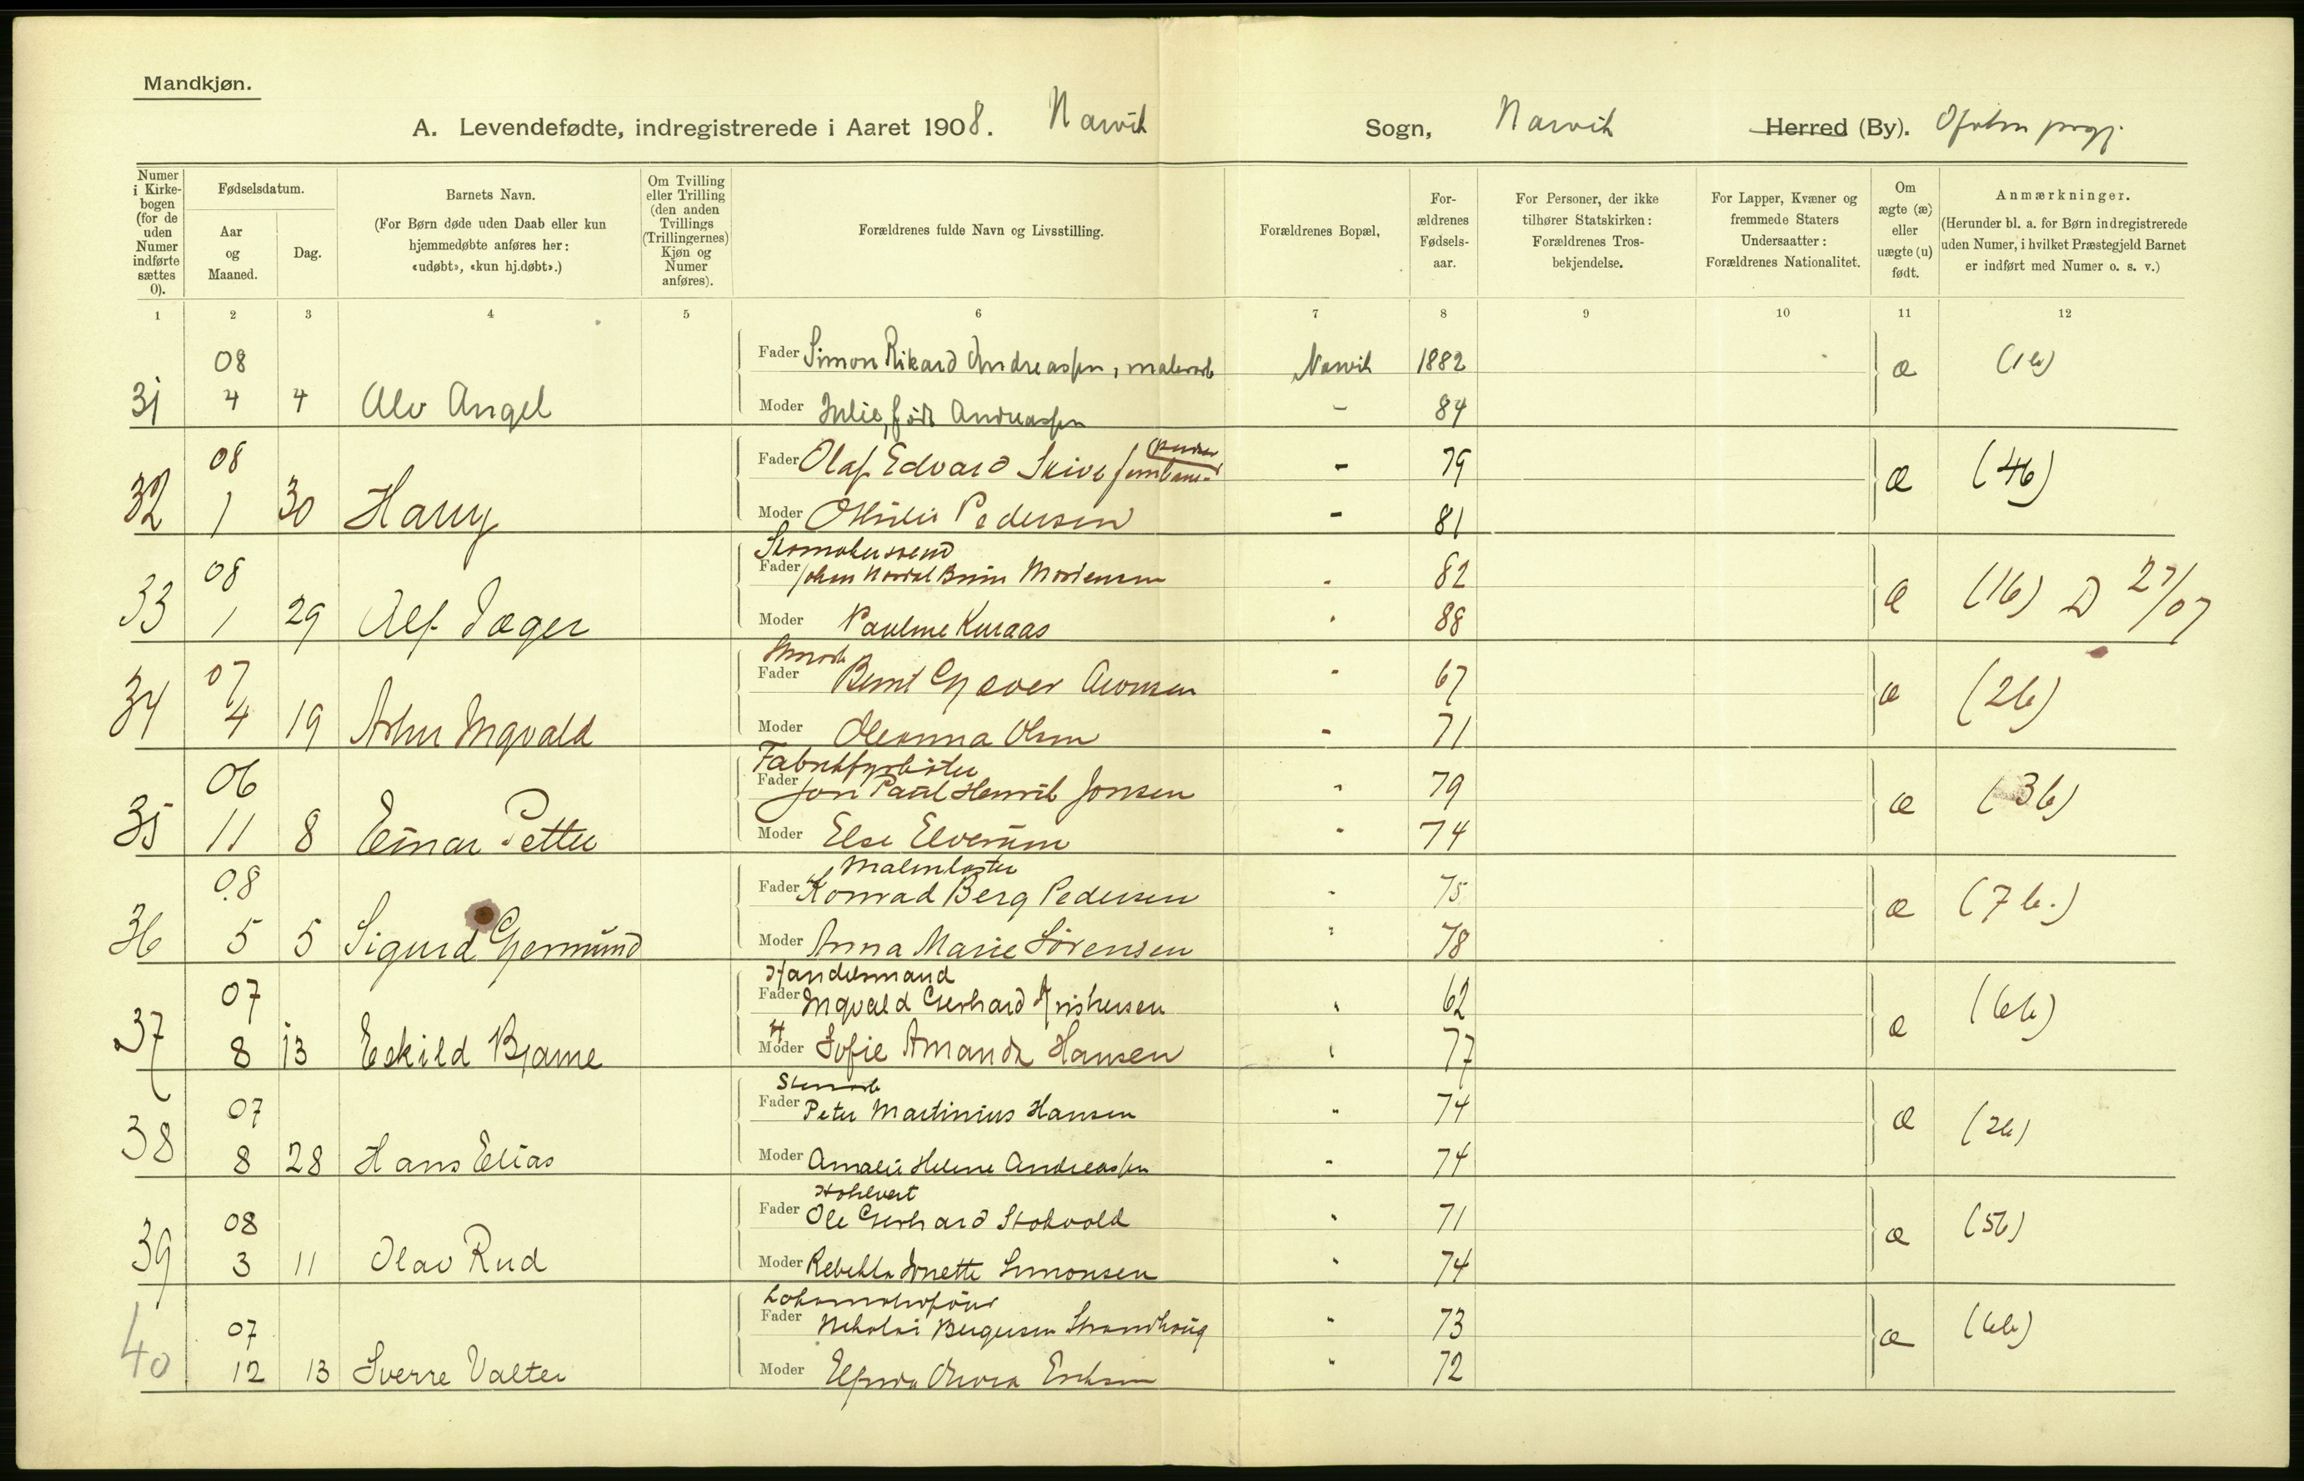 Mandkjøn.
A. Levendefødte, indregistrerede i Aaret 1908. Narvik Sogn, Narvik Herred (By). Ofoten prgj.
Numer i Kirkebogen (for de uden Numer indførte sættes 0).
Fødselsdatum.
Aar og Maaned.
Dag.
Barnets Navn.
(For Børn døde uden Daab eller kun hjemmedøbte anføres her: «udøbt», «kun hj.døbt».)
Om Tvilling eller Trilling (den anden Tvillings (Trillingernes) Kjøn og Numer anføres).
Forældrenes fulde Navn og Livsstilling.
Forældrenes Bopæl,
Forældrenes Fødselsaar.
For Personer, der ikke tilhører Statskirken: Forældrenes Trosbekjendelse.
For Lapper, Kvæner og fremmede Staters Undersaatter: Forældrenes Nationalitet.
Om ægte (æ) eller uægte (u) født.
Anmærkninger.
(Herunder bl. a. for Børn indregistrerede uden Numer, i hvilket Præstegjeld Barnet er indført med Numer o. s. v.)
1 2 3 4 5 6 7 8 9 10 11 12
08 Fader Simon Rikard Andreassen, malerarb Narvik 1882 æ (1b)
31 4 4 Alv Angel Moder Julie, født Andreassen - 84
08 Fader Olaf Edvard Skive - 79 æ (4b)
32 1 30 Harry Moder Othilie Pedersen - 81
Skomakersvend
08 Fader Johan Nordal Brun Mortensen 82 æ (1b) D 27/07
33 1 29 Alf Jæger Moder Pauline Kuraas 88
07 Fader Bernt Gjæver Aronsen 67 æ (2b)
34 4 19 Arthur Ingvald Moder Oleanna Olsen - 71
Fabrikfyrbøter
06 Fader Jon Paul Henrik Jonsen 79 æ (3b)
35 11 8 Einar Petter Moder Else Elverum 74
Malmlaster
08 Fader Konrad Berg Pedersen 75 æ (7b.)
36 5 5 Sigurd Gjermund Moder Anna Marie Sørensen 78
Handelsmand
07 Fader Ingvald Gerhard Kristensen 62 æ (6b)
37 8 13 Eskild Bjarne Moder Sofie Amanda Hansen 77
Stenarb
07 Fader Peter Martinius Hansen 74 æ (2b)
38 8 28 Hans Elias Moder Amalie Helene Andreassen - 74
Hotelvert
08 Fader Ole Gerhard Stokvold 71 æ (5b)
39 3 11 Olav Rud Moder Rebekka Jonette Simonsen 74
Lokomotivfører
07 Fader Nikolai Bergersen Strandhoug 73 æ (6b)
40 12 13 Sverre Valter Moder 72